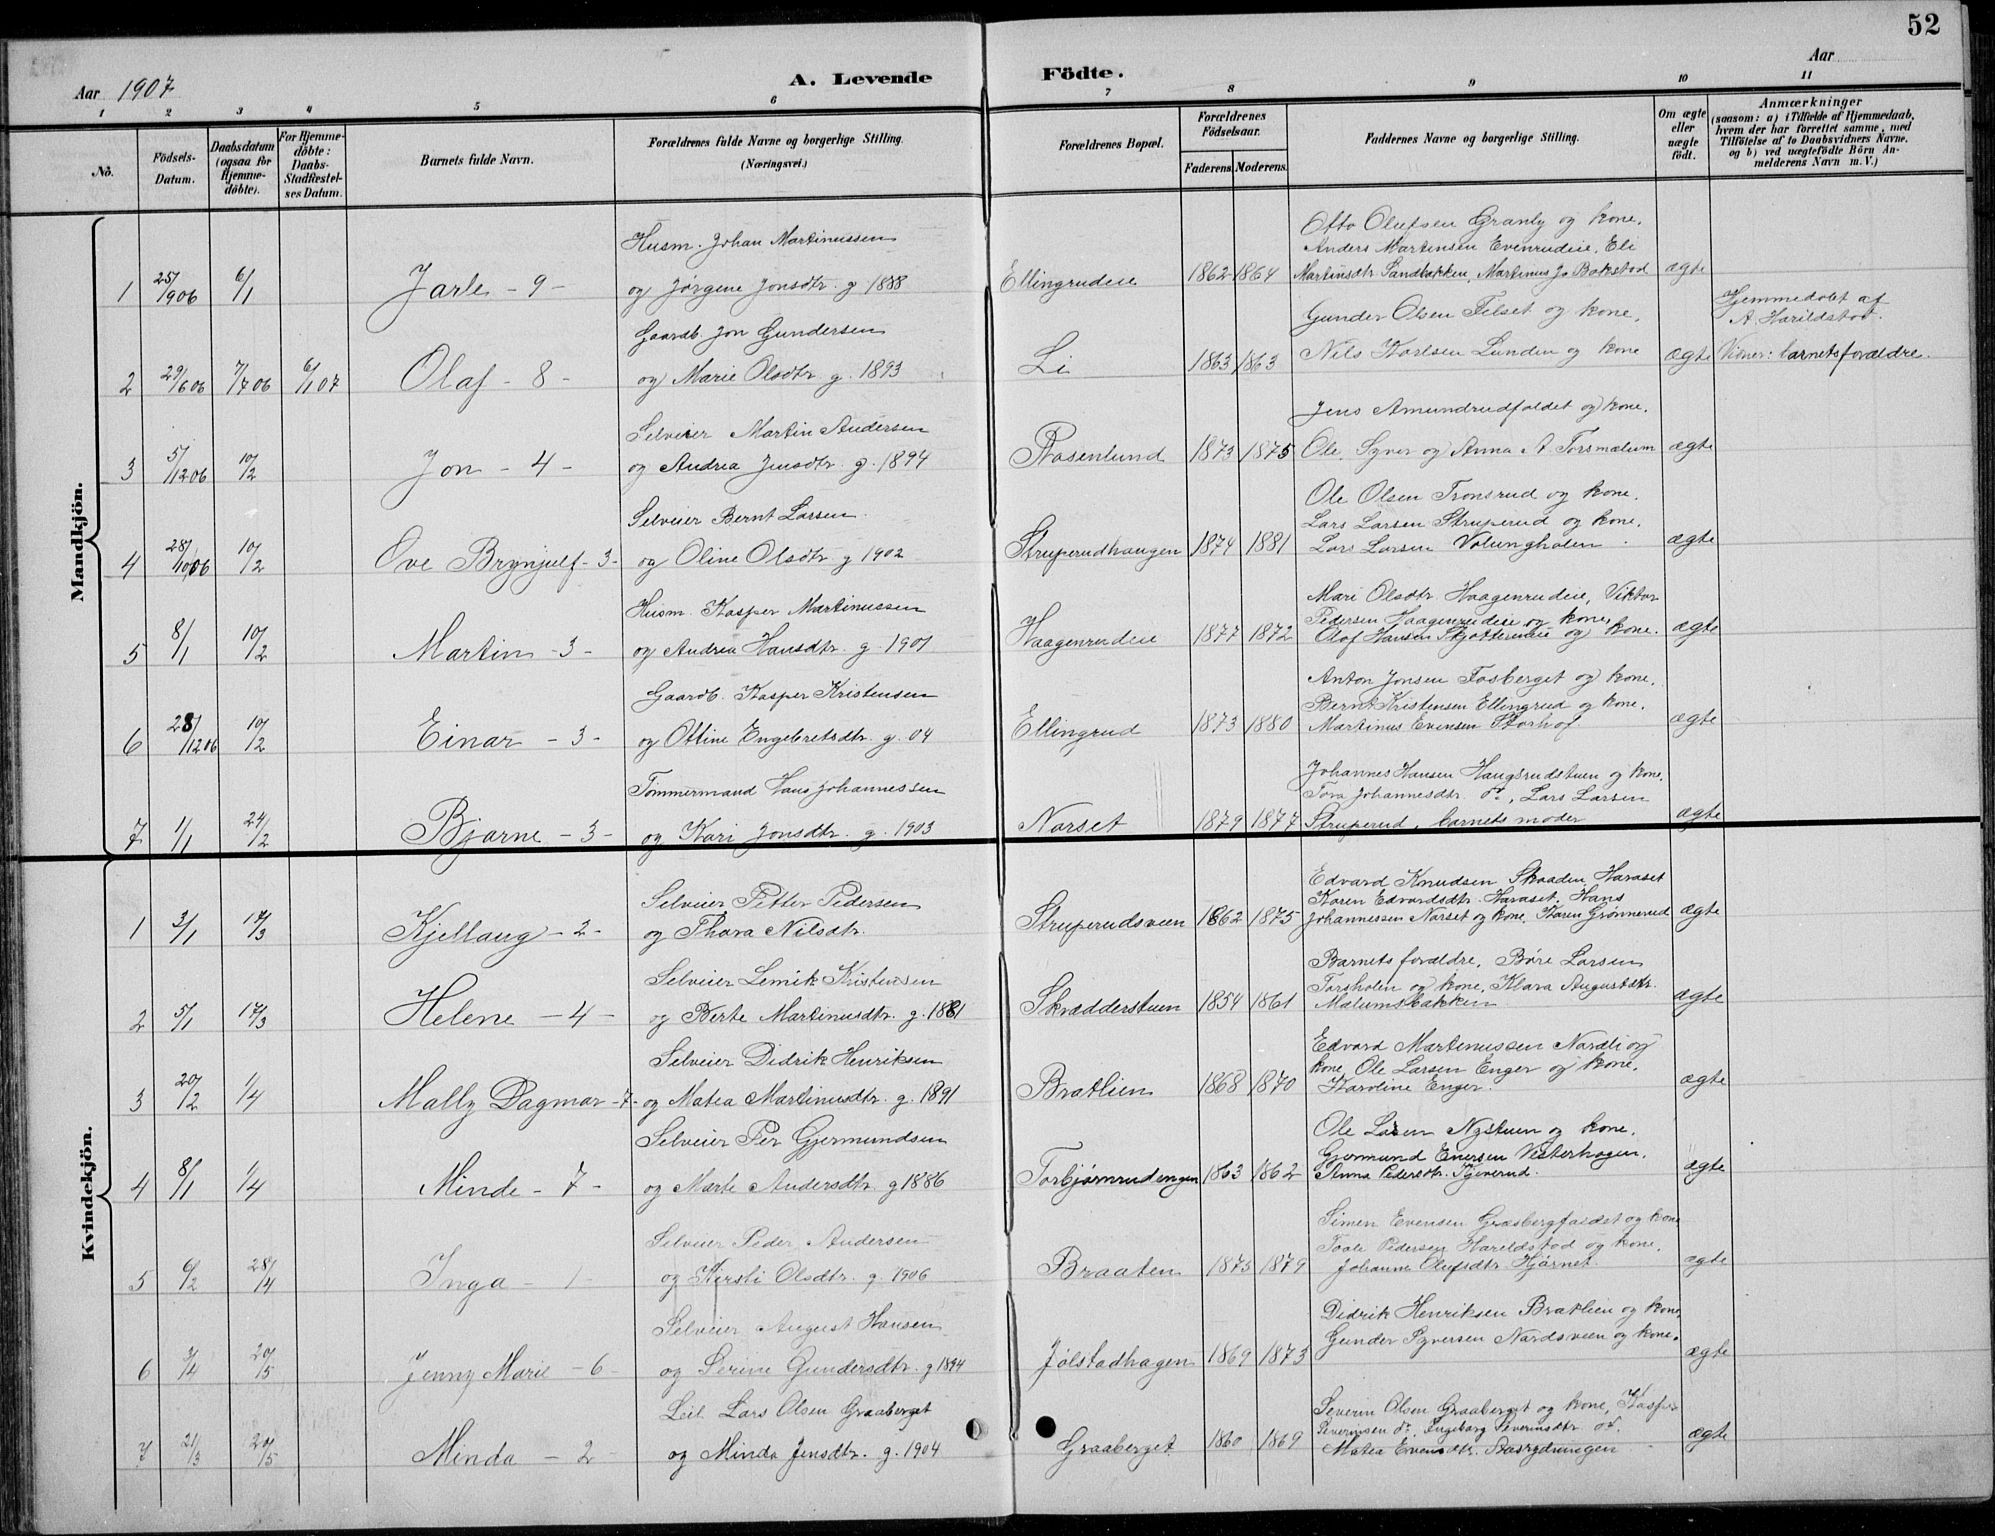 52
Aar 1907 A. Levende Födte. Aar
1 2 3 4 5 6 7 8 9 10 11
No.
Födsels-Datum.
Daabsdatum (ogsaa for Hjemmedöbte).
For Hjemmedöbte: Daabs-Stadfestelses Datum.
Barnets fulde Navn.
Forældrenes fulde Navne og borgerlige Stilling. (Næringsvei.)
Forældrenes Bopæl.
Forældrenes Födselsaar.
Faderens. Moderens.
Faddernes Navne og borgerlige Stilling.
Om ægte eller uægte födt.
Anmærkninger (saasom: a) i Tilfælde af Hjemmedaab, hvem der har forrettet samme, med Tilföielse af to Daabsvidners Navne. og b) ved uægtefödte Börn Anmelderens Navn m. V.)
Mandkjön.
Husm. Johan Martinussen
Otto Olufsen Granly og kone,
Anders Martinsen Evenrudeie, Eli
1 25/1906 6/1 Jarle - 9 - og Jørgine Jonsdtr. g 1888 Ellingrudeie 1862 1864 Martinsdtr Sandbakken, Martinus Jo Bakstad ægte
Gaardb. Jon Gundersen
Gunder Olsen Filset og kone,
Hjemmedøbt af A. Harildstad.
2 29/6 06 7/7 06 6/1 07 Olaf - 8 - og Marie Olsdtr g. 1893 Li 1863 1863 Nils Karlsen Lunden og kone ægte Vidner: barnets forældre.
Selveier Martin Andersen
Jens Amundrudfaldet og kone,
3 5/12 06 10/2 Jon - 4 - og Andrea Jensdtr. g. 1894 Rosenlund 1873 1875 Ole, Syver og Anna A Torsmælum ægte
Selveier Bernt Larsen
Ole Olsen Tronsrud og kone,
Lars Larsen Struperud og kone,
4 28/10 06 10/2 Ove Brynjulf - 3 - og Oline Olsdtr g 1902 Struperudhaugen 1874 1881 Lars Larsen Volungholen. ægte
Husm. Kasper Martinussen
Mari Olsdtr Haagenrudeie, Viktor
Pedersen Haagenrudeie og kone,
5 8/1 10/2 Martin - 3 - og Andrea Hansdtr. g. 1901 Haagenrudeie 1877 1872 Olaf Hansen Skjøtterudeie og kone. ægte
Gaardb. Kasper Kristensen
Anton Jonsen Fosberget og kone,
Bernt Kristensen Ellingrud og kone,
6 28/12 06 10/2 Einar - 3 - og Ottine Engebretsdtr. g. 04 Ellingrud 1873 1880 Martinus Evensen Storhof. ægte
Tømmermand Hans Johannessen
Johannes Hansen Haugsrudstuen og kone,
Tora Johannesdtr. do, Lars Larsen
7 1/1 24/2 Bjarne - 3 - og Kari Jonsdtr. g. 1903 Narset 1879 1877 Struperud, barnets moder ægte
Kvindekjön.
Selveier Petter Pedersen
Edvard Knudsen Skaaden, Haraset
Karen Edvardsdtr. Haraset, Hans
1 3/1 17/3 Kjellaug - 2 - og Thora Nilsdtr. Struperudsveen 1862 1875 Johannessen Narset og kone, Karen Grønnerud ægte
Selveier Lemik Kristensen
Barnets forældre, Børe Larsen
Torsholen og kone, Klara Augustdtr.
2 5/1 17/3 Helene - 4 - og Berte Martinusdtr. g. 1881 Skrædderstuen 1854 1861 Mælumsbakken ægte
Selveier Didrik Henriksen
Edvard Martinussen Nordli og
kone, Ole Larsen Enger og kone,
3 20/2 1/4 Mally Dagmar - 7 - og Matea Martinusdtr. g. 1891 Bratlien 1868 1870 Karoline Enger. ægte
Selveier Per Gjermundsen
Ole Larsen Nystuen og kone,
Gjermund Enersen Vesterhagen,
4 8/1 1/4 Minde - 7 - og Marte Andersdtr. g 1886 Torbjørnrudengen 1863 1862 Anna Pedersdtr. Kjeverud. ægte
Selveier Peder Andersen
Simen Evensen Graabergfaldet og kone
Paale Pedersen Hareldstad og kone,
5 6/2 28/4 Inga - 1 - og Kirsti Olsdtr. g. 1906 Braaten 1873 1879 Johanne Olufsdtr Hjørnet. ægte
Selveier August Hansen
Didrik Henriksen Bratlien og kone,
Gunder Syversen Nordsveen og kone.
6 3/4 20/5 Jenny Marie - 6 - og Serine Gundersdtr. g 1894 Jølstadhagen 1869 1873 ægte
Leil. Lars Olsen Graaberget
Severin Olsen Graaberget og kone, Kasper
Severinsen do, Ingeborg Severinsdtr do.
7 21/3 20/5 Minda - 2 - og Minda Jensdtr. g. 1904 Graaberget 1860 1869 Matea Evensdtr. Aasrydningen ægte